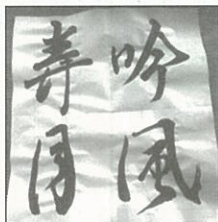 吟風
弄月